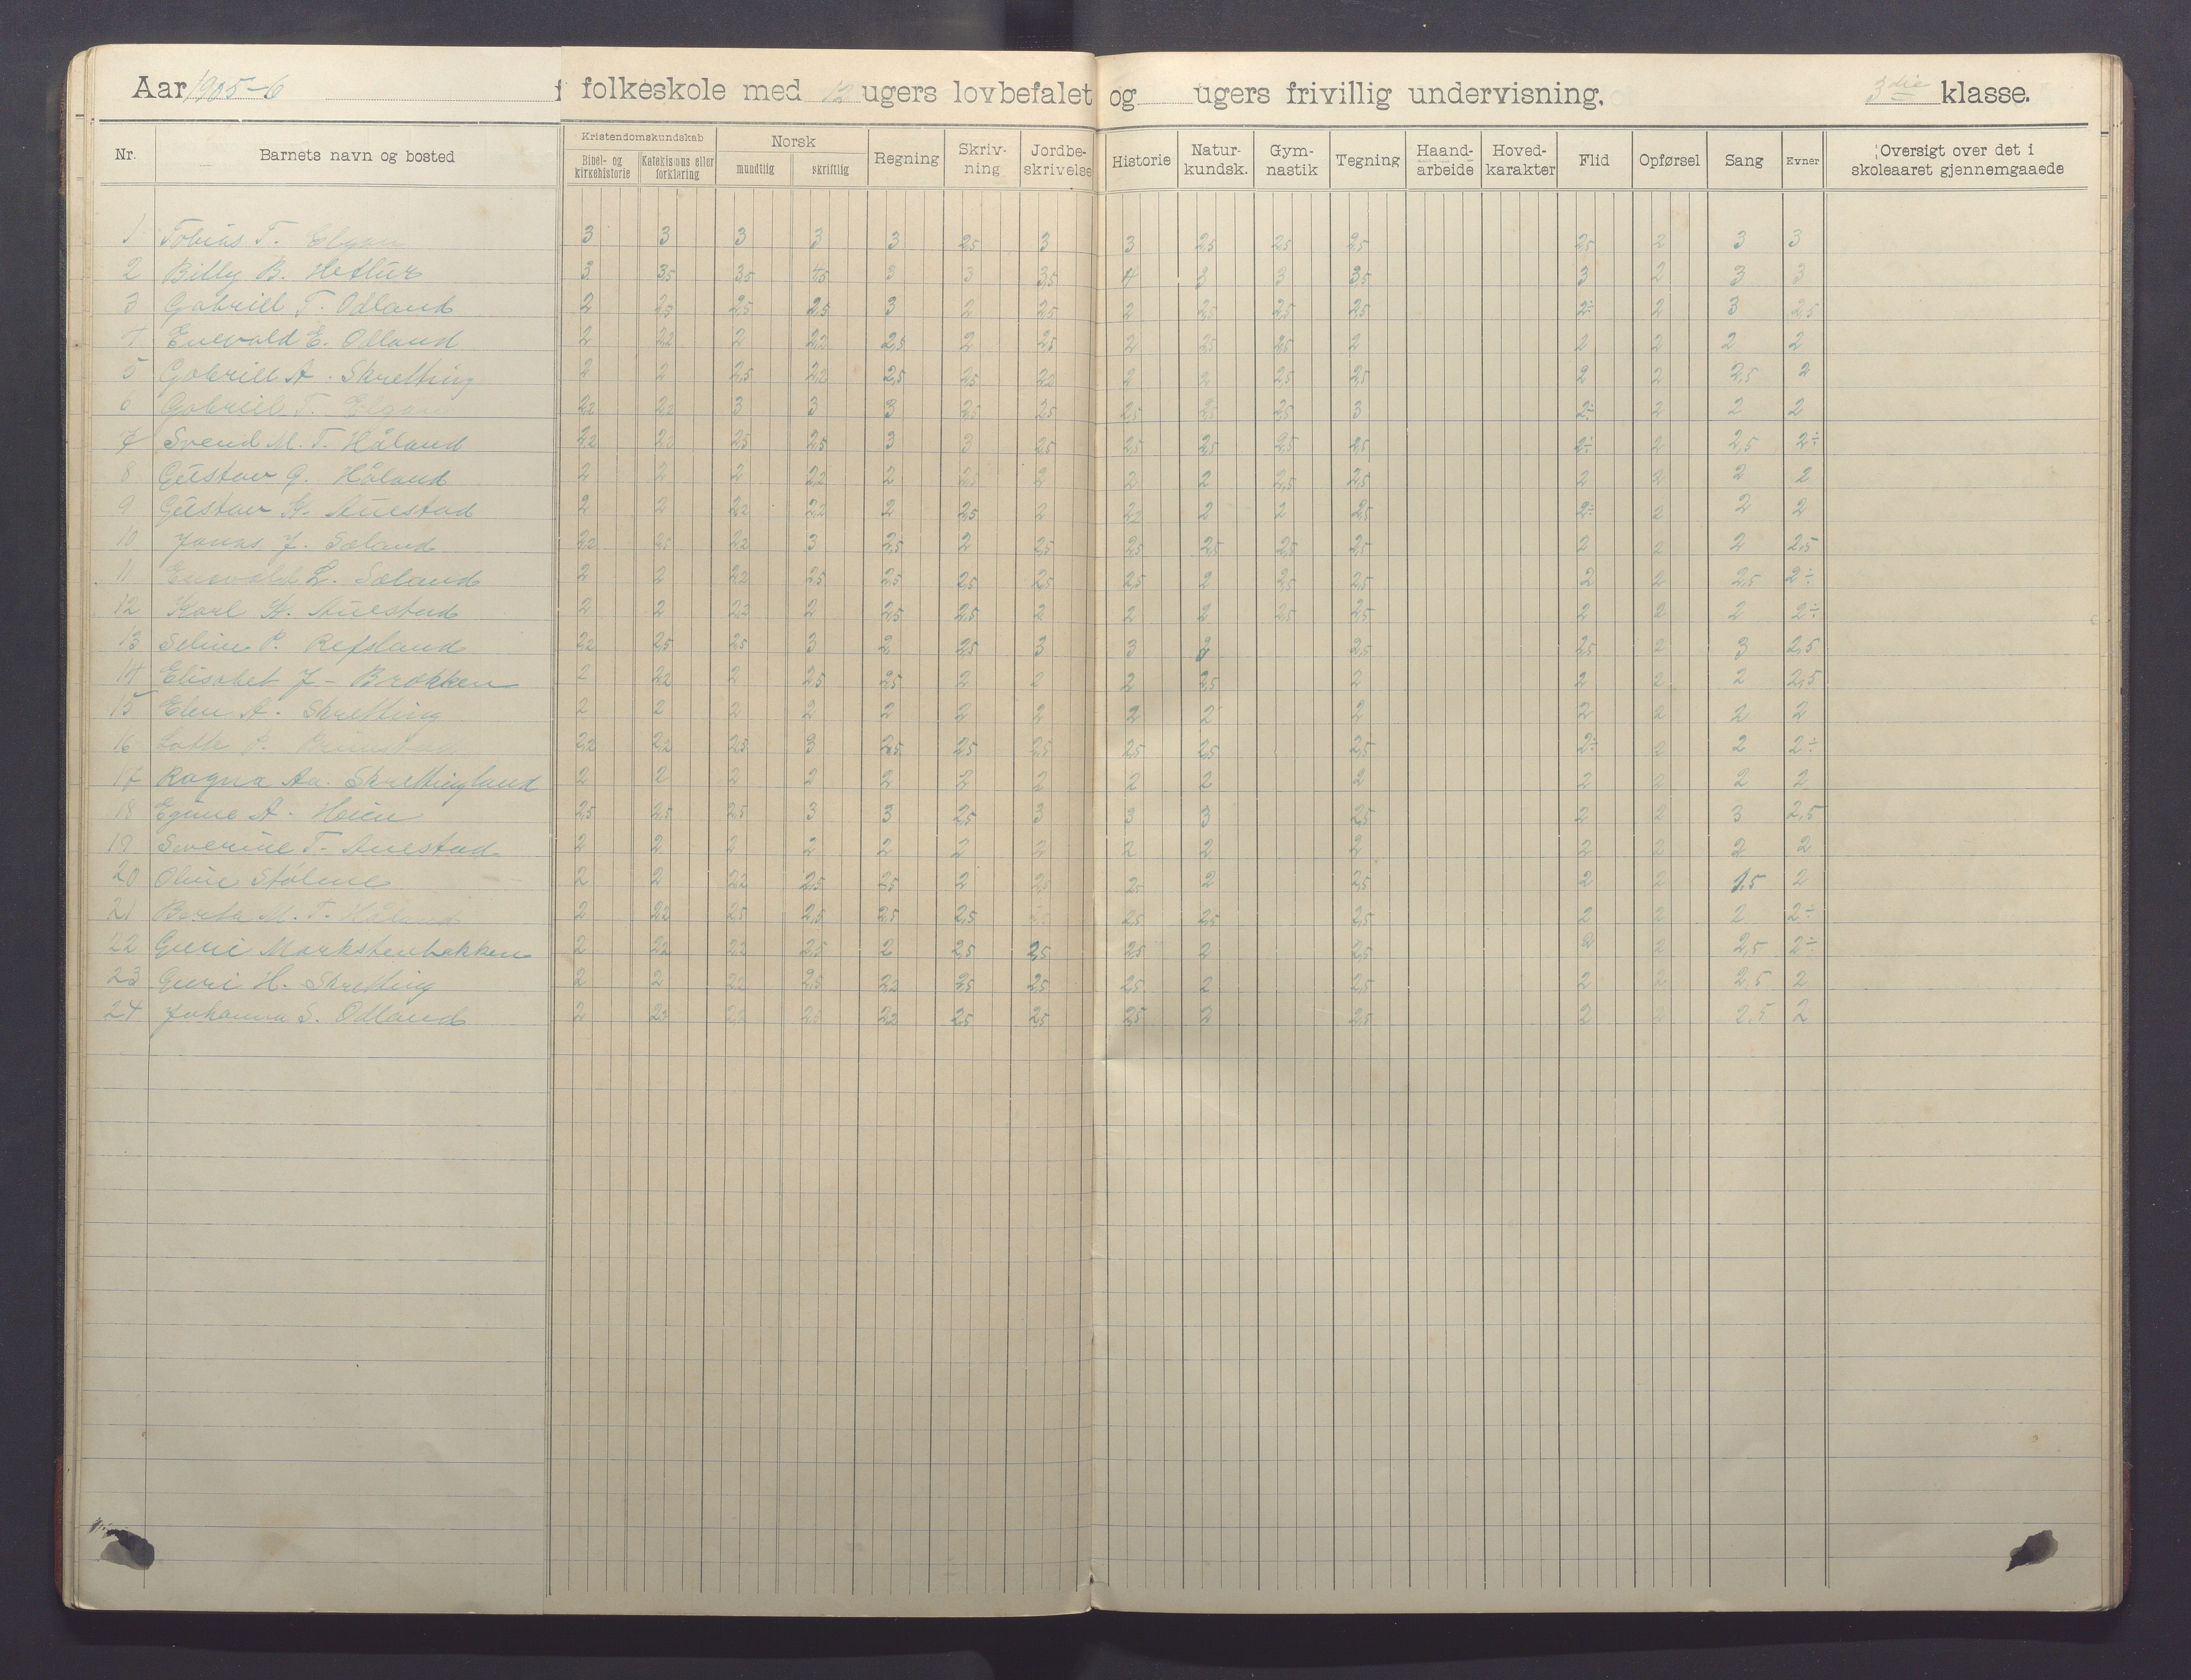 Aar 1905-6 i folkeskole med 12 ugers lovbefalet og ugers frivillig undervisning. 3die klasse.
Nr. Barnets navn og bosted Kristendomskundskab Bibel- og kirkehistorie Katekismus eller forklaring Norsk mundtlig skriftlig Regning Skriv-ning Jordbe-skrivelse Historie Natur-kundsk. Gym-nastik Tegning Haand-arbeide Hoved-karakter Flid Opførsel Sang Evner Oversigt over det i skoleaaret gjennemgaaede
1 Tobias T. 3 3 3 3 3 2,5 3 3 2,5 2,5 2,5 2,5 2 3 3
2 Billy B. 3 3,5 3,5 4,5 3 3 3,5 4 3 3 3,5 3 2 3 3
3 Gabriel T. Odland 2 2,5 2,5 2,5 3 2 2,5 2 2,5 2,5 2,5 2÷ 2 3 2,5
4 Enevald E. Odland 2 2,2 2 2,2 2,5 2 2,5 2 2,5 2,5 2 2 2 2 2
5 Gabriel A. Skretting 2 2 2,5 2,2 2,5 2,5 2,2 2 2 2,5 2,5 2 2 2,5 2
6 Gabriel T. 2,2 2,2 3 3 3 2,5 2,5 2,5 2,5 2,5 3 2÷ 2 2 2
7 Svend M. T. Håland 2,2 2,2 2,5 2,5 3 3 2,5 2,5 2,5 2,5 2,5 2÷ 2 2,5 2÷
8 Gustav G. Håland 2 2 2 2,2 2 2,5 2 2 2 2,5 2,5 2 2 2 2
9 Gustav K. Auestad 2 2 2,2 2,2 2 2,5 2 2,2 2 2 2,5 2÷ 2 2 2
10 Jonas J. Sæland 2,2 2,5 2,2 3 2,5 2 2,5 2,5 2,5 2,5 2,5 2 2 2 2,5
11 Enevald L. Sæland 2 2 2,2 2,5 2,5 2,5 2,5 2,5 2 2,5 2,5 2 2 2,5 2÷
12 Karl A. Auestad 2 2 2,2 2 2,5 2,5 2 2 2 2,5 2,5 2 2 2 2÷
13 Seline P. Refsland 2,2 2,5 2,5 3 2 2,5 3 3 2 2,5 2,5 2 3 2,5
14 Elisabet J- Brækken 2 2,2 2 2,5 2,5 2 2 2 2,5 2 2 2 2 2,5
15 Elen A. Skretting 2 2 2 2 2 2 2 2 2 2 2 2 2 2
16 P. 2,2 2,2 2,5 3 2,5 2,5 2,5 2,5 2,5 2,5 2÷ 2 2 2÷
17 Ragna Aa. Skrettingland 2 2 2 2 2 2 2 2 2 2 2 2 2 2
18 A. Heien 2,5 2,5 2,5 3 3 2,5 3 3 3 2,5 2 2 3 2,5
19 Severine T. Auestad 2 2 2 2 2 2 2 2 2 2 2 2 2 2
20 Oline Stølene 2 2 2,2 2,5 2,5 2 2,5 2,5 2 2,5 2 2 1,5 2
21 Berta M. T. Håland 2 2,2 2,5 2,5 2,5 2,5 2,5 2,5 2,5 2,5 2 2 2 2÷
22 Guri Markstenbakken 2 2,2 2,2 2,5 2 2,5 2,5 2,5 2 2,5 2 2 2,5 2÷
23 Guri H. Skretting 2 2 2,2 2,5 2,2 2,5 2,5 2,5 2 2,5 2 2 2,5 2
24 Johanna S. Odland 2 2,2 2,2 2,5 2,2 2,5 2,5 2,5 2 2,5 2 2 2,5 2